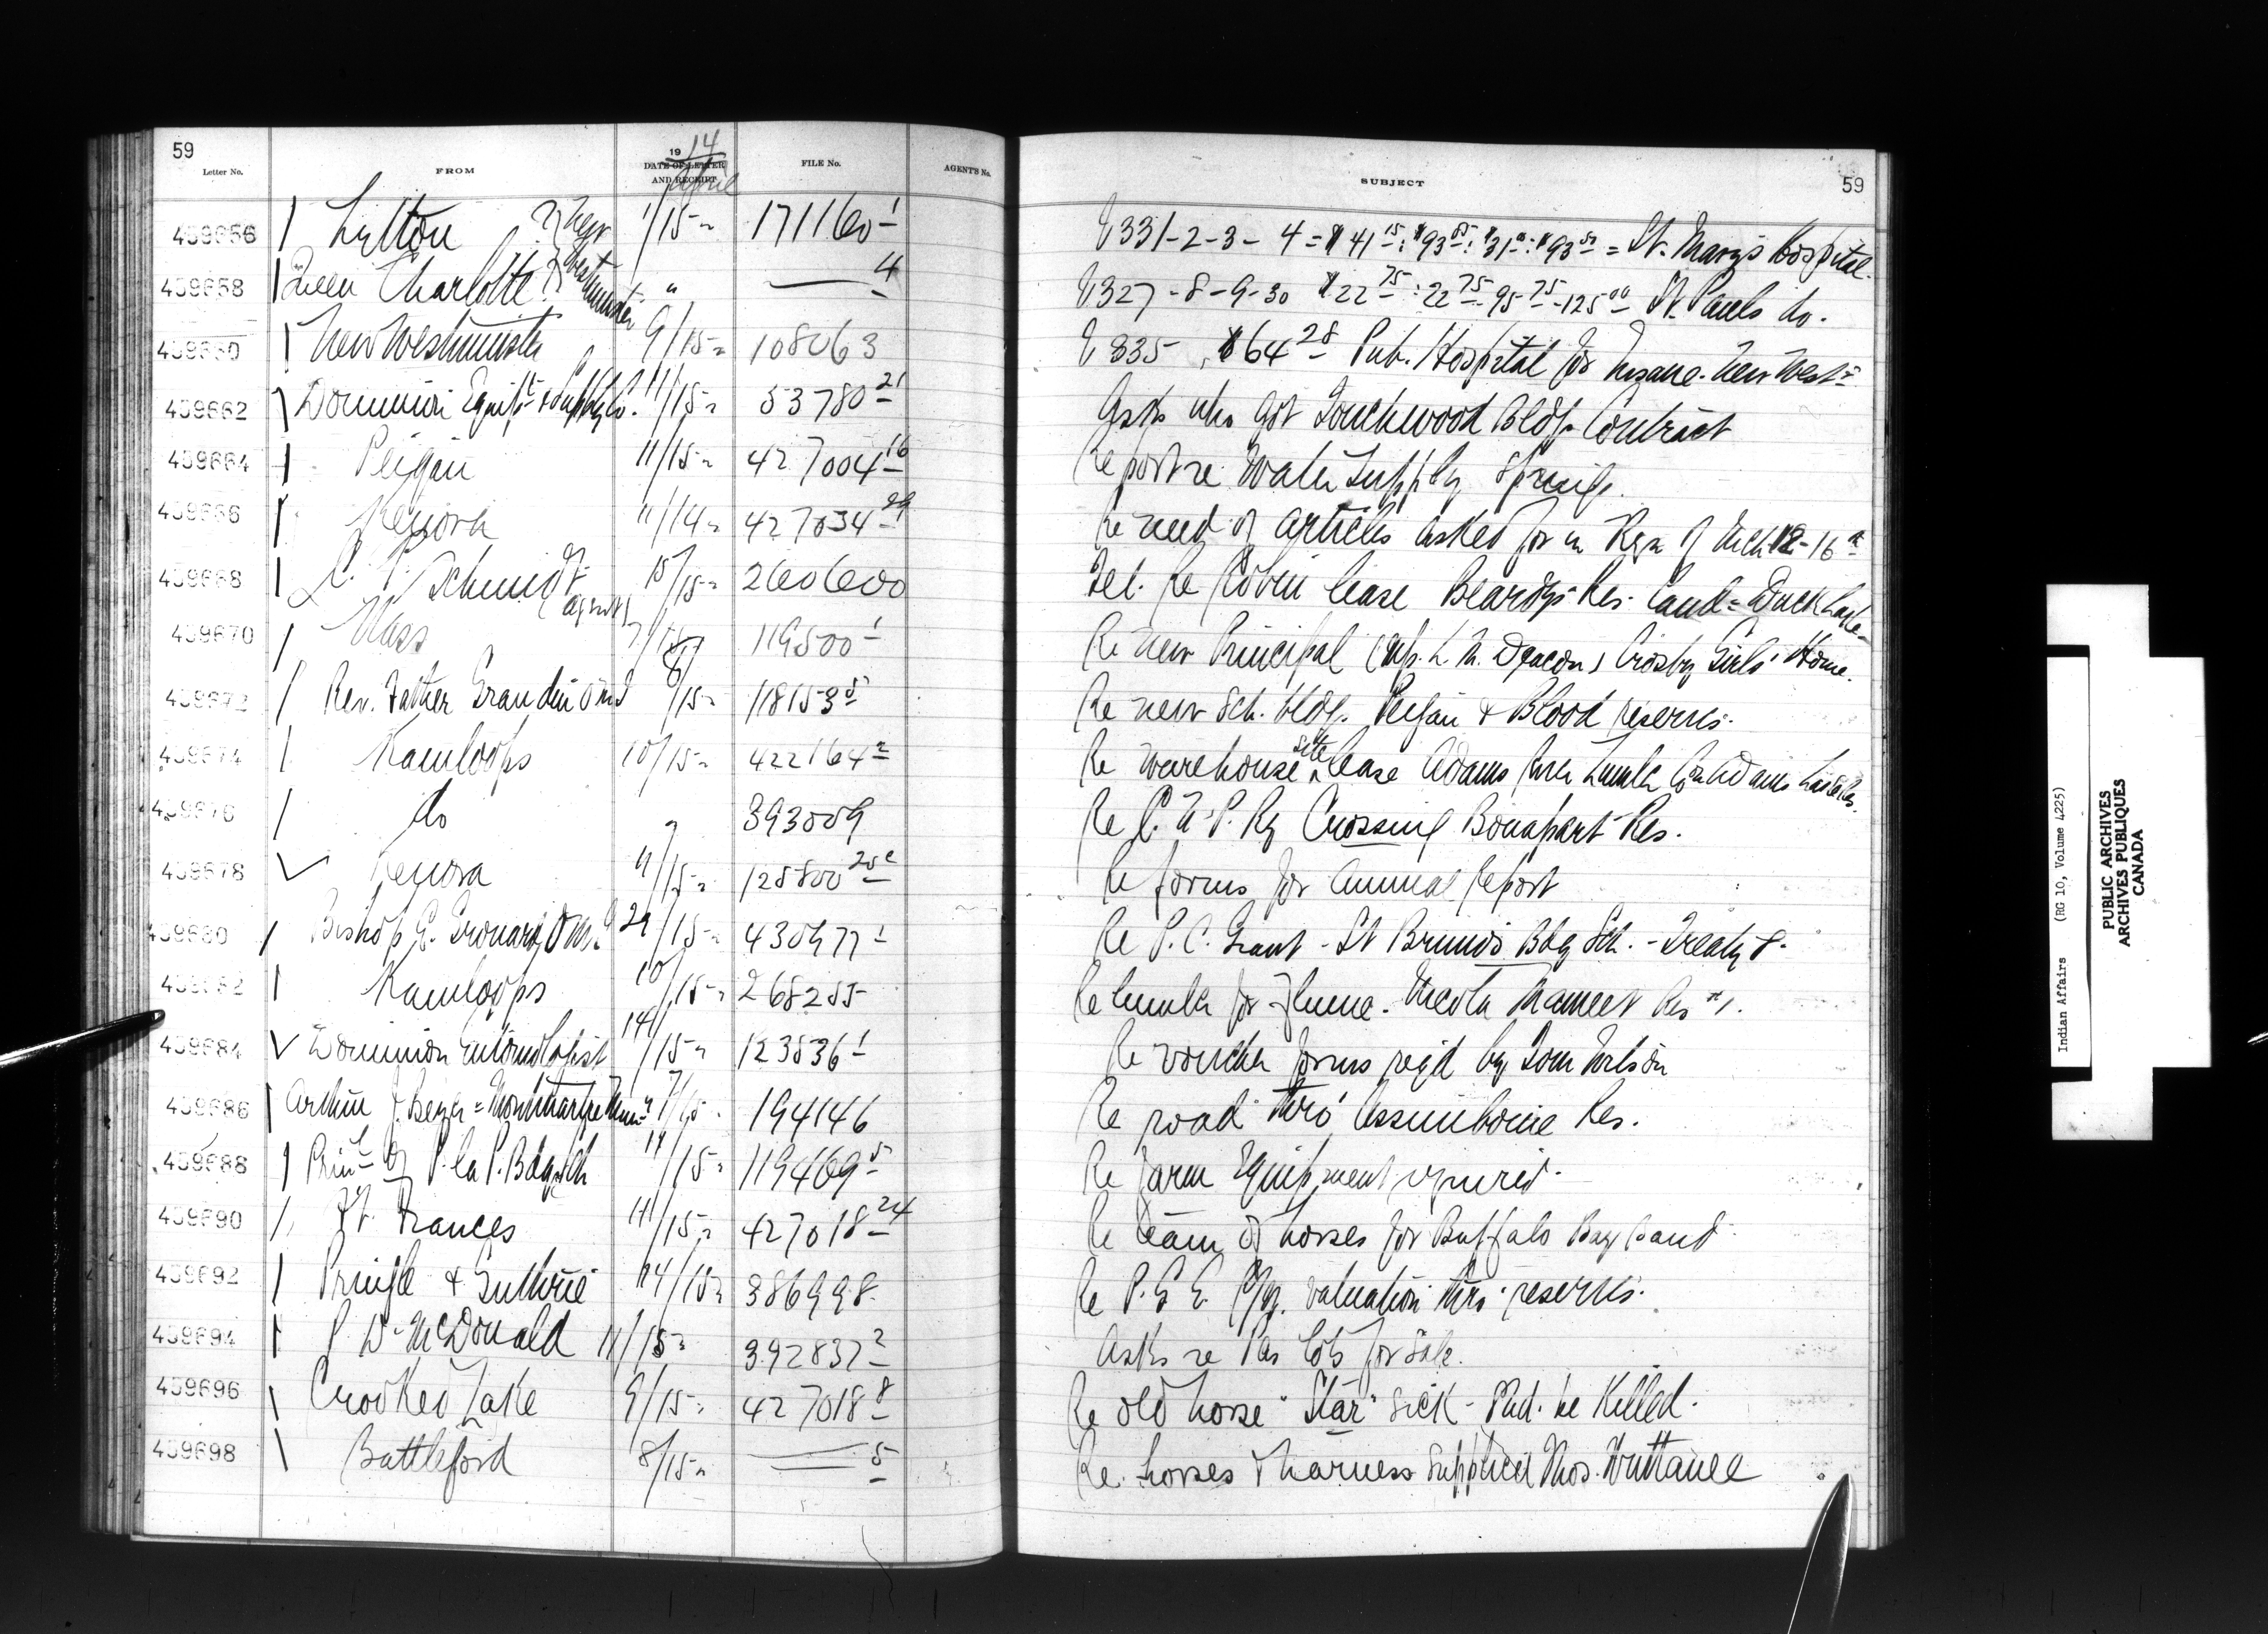 59
1914
Letter No. FROM DATE OF LETTER AND RECEIPT FILE No. AGENT'S No. SUBJECT
April
59
459656 Lytton New 1/15 171160-1 V331-2-3-4 = $41 15: $93 85: $31: $93 50 = St. Mary's Hospital
459658 Queen Charlotte Westminster " 4 V327-8-9-30 $22 75: 22 75-95 75-125 00 St. Pauls do.
459660 New Westminster 9/15 108063 V335, $64 28 Pub. Hospital for Insane. New West
459662 Dominion Equipt & Supply Co. 11/15 53780-21 Asks who got Touchwood Bldg. Contract
459664 Peigan 11/15 427004-16 Report re Water Supply Springs.
459666 Kenora 11/14 427034-29 Re need of articles asked for in Reqn of Mch 12-16
459668 Schmidt agent 15/15 260600 Tel. Re lease Beardy's Res. land = Duck Lake
459670 Nass 7/15 119500-1 Re new Principal (Miss L. M. Deacon) Crosby Girls' Home.
459672 Rev. Father Grandin OMI 8/15 118153-5 Re new Sch. bldg. Peigan & Blood reserves.
459674 Kamloops 10/15 422164-2 Re warehouse site lease Adams River Lumber Co. on Adams Lake Res.
459676 do " 393009 Re C. N. P. Ry Crossing Bonapart Res.
459678 Kenora 11/15 125800-25c Re forms for Annual Report
459680 Bishop E. Grouard, OMI 29/15 430977-1 Re P. C. Grant - St Bruno's Bdg Sch. - Treaty 8.
459682 Kamloops 10/15 268255 Re lumber for Flume. Nicola Mameet Res #1.
459684 Dominion Entomologist 14/15 123536-1 Re voucher forms reqd by Tom Wilson
459686 Arthur J. = Montmartre 7/15 194146 Re road thro' Assiniboine Res.
459688 Prinl of P. la P. Bdg Sch 14/15 119469-5 Re farm Equipment required.
459690 Ft. Frances 11/15 427018-24 Re team of horses for Buffalo Bay band
459692 Pringle & Guthrie 14/15 386998 Re P. G. E. Ry. valuation thro' reserves.
459694 P. D. McDonald 11/15 392837-2 Asks re lots for sale.
459696 Crooked Lake 9/15 427018-8 Re old horse "Star" sick - shd. be Killed.
459698 Battleford 8/15 5 Re. horses & harness supplied Thos. Wuttanee
Indian Affairs (RG 10, Volume 4225)
PUBLIC ARCHIVES
ARCHIVES PUBLIQUES
CANADA